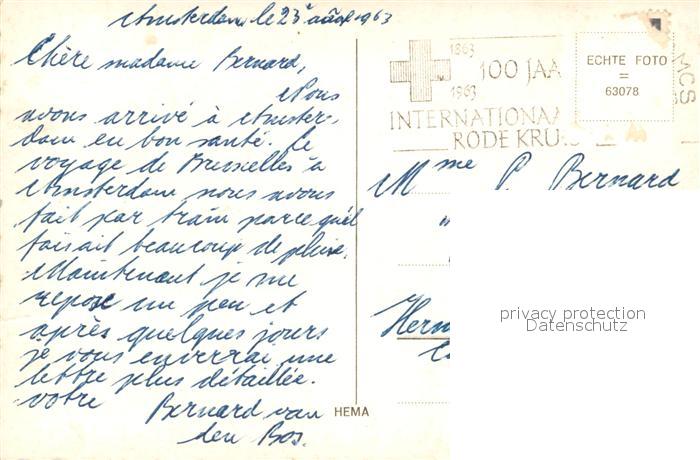 Amsterdam, le 23 août 1963
Chère madame Bernard,
Nous
avons arrivé à Amster-
dam en bon santé. Le
voyage de Bruxelles à
Amsterdam nous avons
fait par train parce qu'il
faisait beaucoup de pluie.
Maintenant je me
repose un peu et
après quelques jours
je vous enverrai une
lettre plus détaillée.
Votre Bernard van
den Bos.
HEMA
1863
1963
100 JAA
INTERNATIONAA
RODE KRU
ECHTE FOTO
=
63078
Mme P. Bernard
"
Herm
privacy protection
Datenschutz